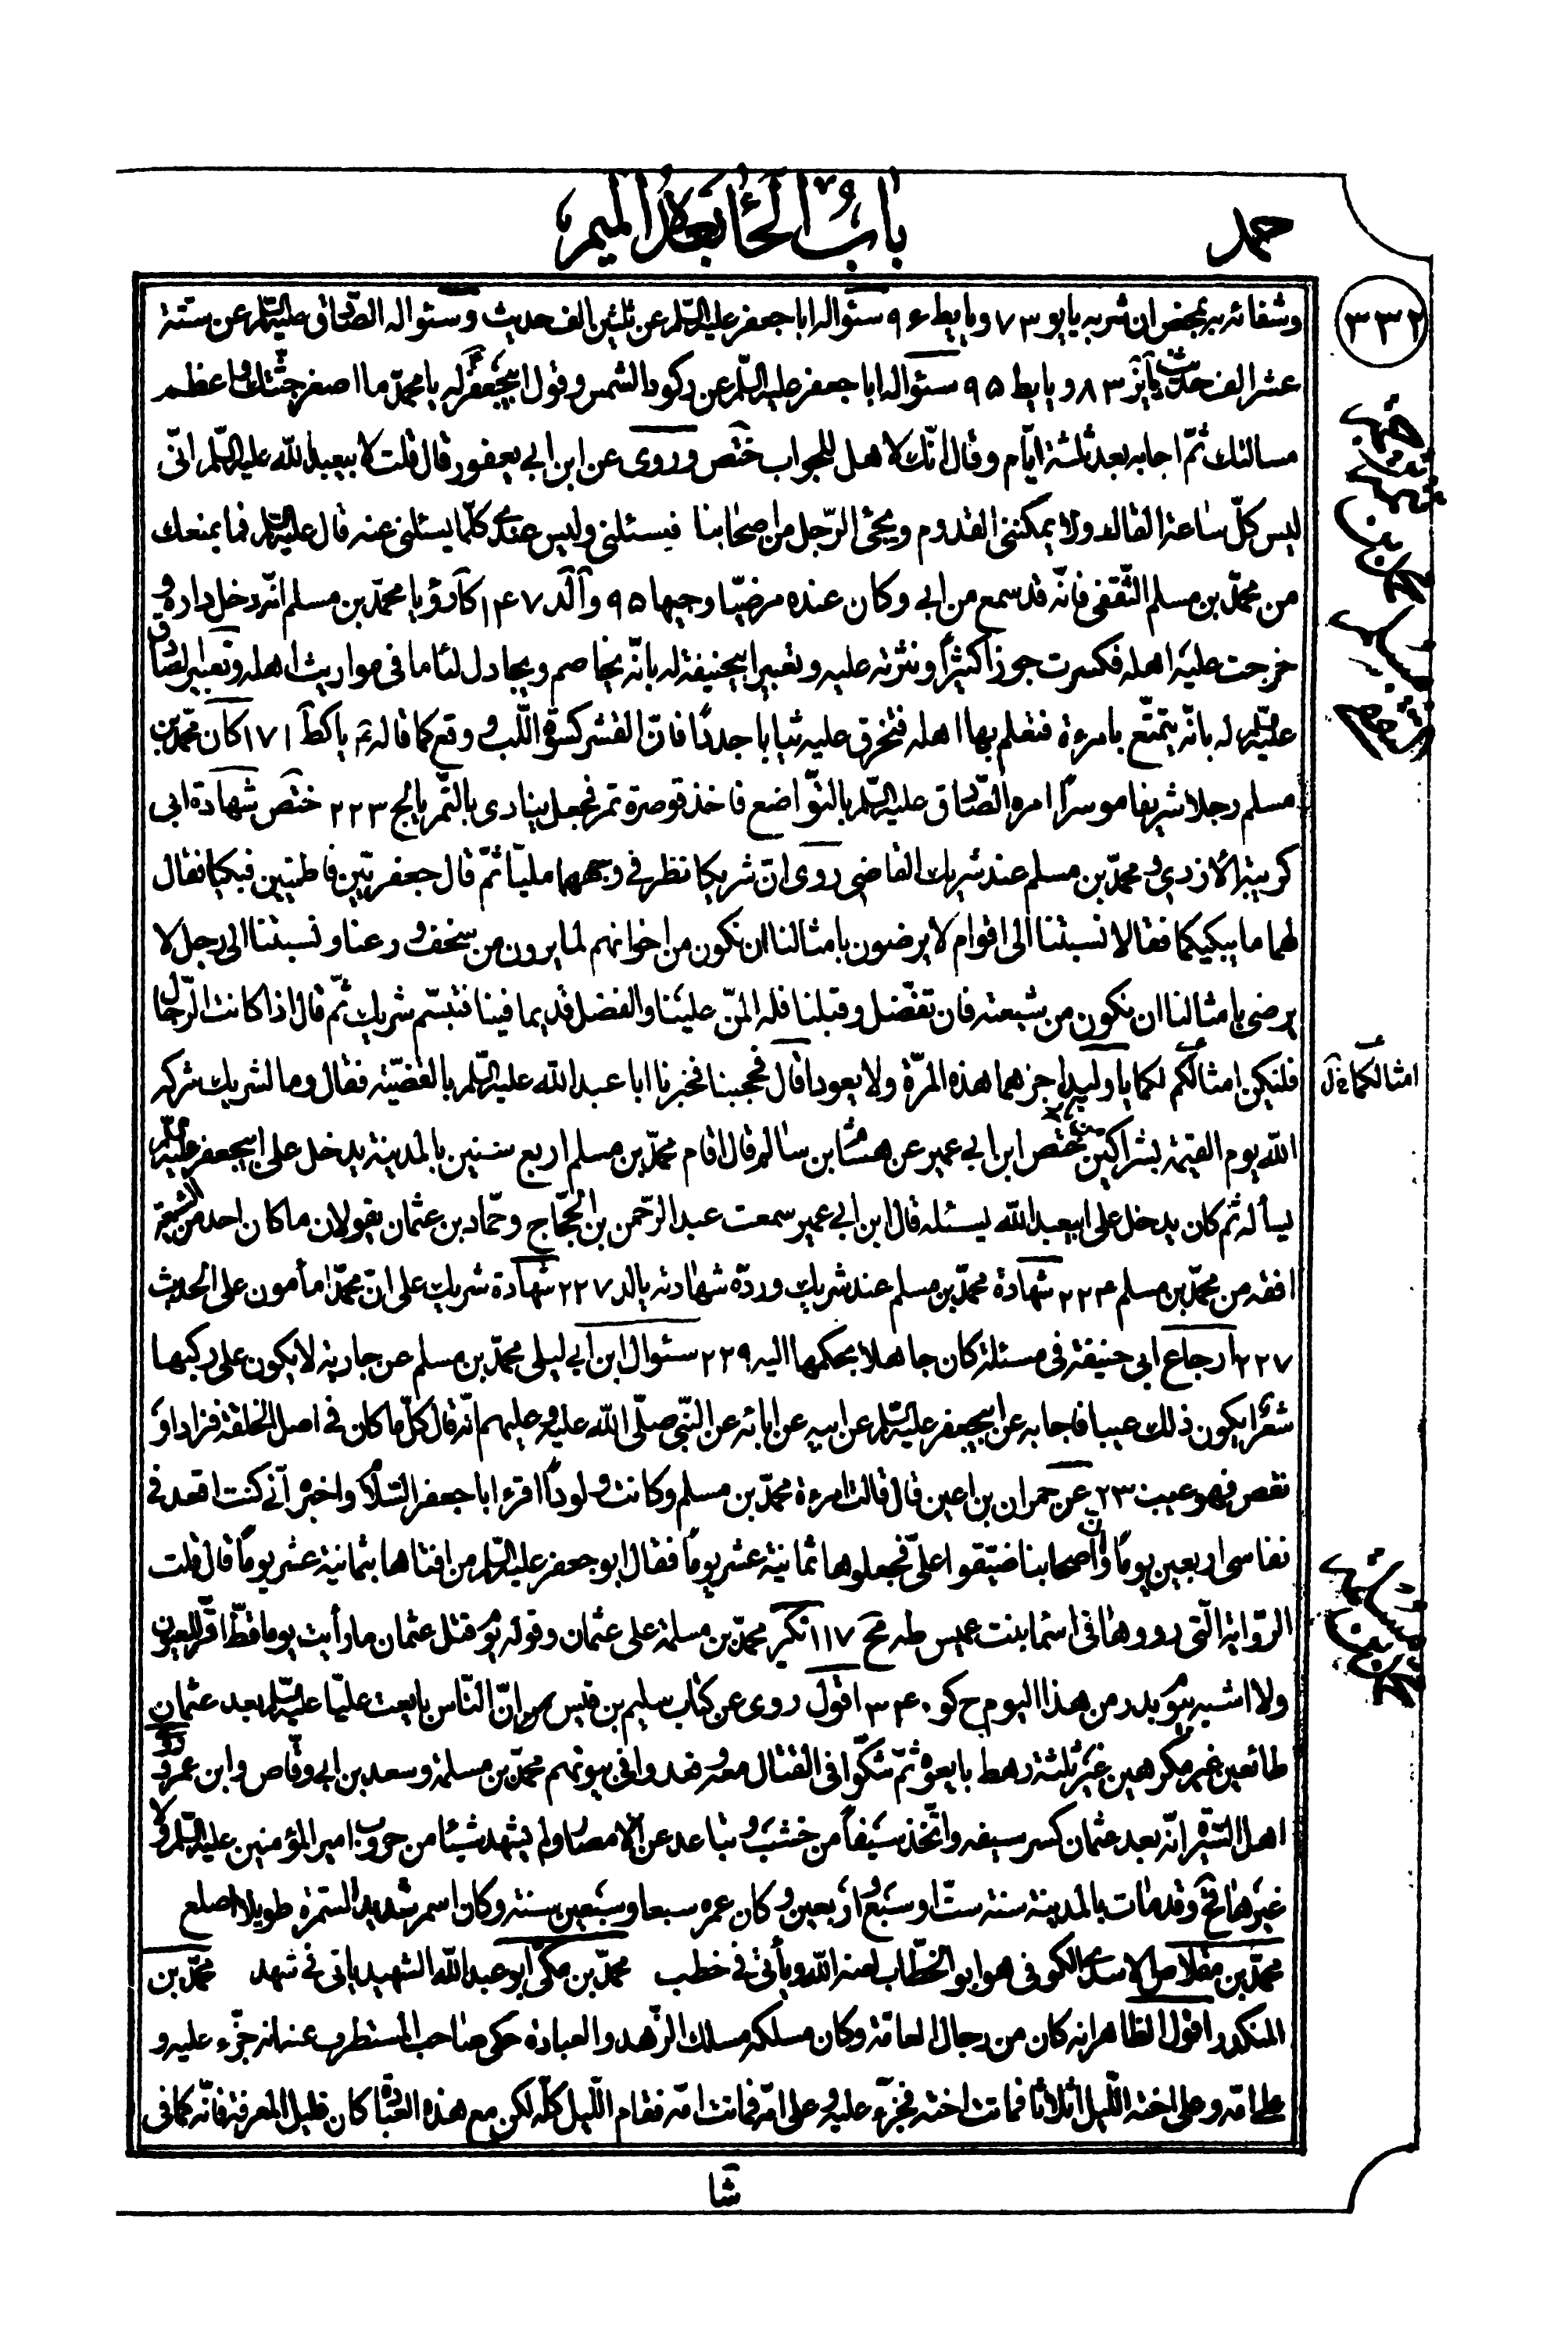 باب الحاء بعده الميم
حمد
٣٣٢
وشفائه به بمحض ان شربه يا يو ٧٣ ويا يط ٩۶ سئواله ابا جعفر عليه السّلم عن ثلثين الف حديث وسئواله الصّادق عليه السّلم عن ستّة
عشر الف حديث يا يز ٨٣ ويا يط ٩۵ سئواله ابا جعفر عليه السّلم عن ركود الشمس وقول ابيجعفر له يا محمّد ما اصغر جثّتك واعظم
مسائلك ثمّ اجابه بعد ثلثة ايّام وقال انّك لاهل للجواب ختص وروى عن ابن ابي يعفور قال قلت لابيعبد الله عليه السّلم انّى
ليس كلّ ساعة القاك ولا يمكننى القدوم ويجئ الرّجل من اصحابنا فيسئلنى وليس عندى كلّما يسئلنى عنه قال عليه السّلم فما يمنعك
من محمّد بن مسلم الثّقفى فانّه قد سمع من ابى وكان عنده مرضيّا وجيها ٩۵ وآلد ١۴٧ كا رؤيا محمّد بن مسلم انّه دخل داره و
خرجت عليه اهله فكسرت جوزا كثيرا ونثرته عليه وتعبير ابيحنيفة له بانّه يخاصم ويجادل لئاما فى مواريث اهله وتعبير الصّادق
عليه السّلم له بانّه يتمتّع بامرءة فتعلم بها اهله فتخرق عليه ثيابا جددا فانّ القشر كسوة اللّب ووقع كما قاله ع يا كط ١٧١ كان محمّد بن
مسلم رجلا شريفا موسرا امره الصّادق عليه السّلم بالتّواضع فاخذ قوصرة تمر فجعل ينادى بالتّمر يا لج ٢٢٣ ختص شهادة ابى
كريبة الأزدي ومحمّد بن مسلم عند شريك القاضى روى انّ شريكا نظر فى وجههما مليّا ثمّ قال جعفريّين فاطميّين فبكيا فقال
لهما ما يبكيكما فقالا نسبتنا الى اقوام لا يرضون بامثالنا ان نكون من اخوانهم لما يرون من سخف ورعنا ونسبتنا الى رجل لا
يرضى بامثالنا ان نكون من شيعته فان تفضّل وقبلنا فله المنّ علينا والفضل قديما فينا فتبسّم شريك ثمّ قال اذا كانت الرّجال
فلتكن امثالكم لكما يا وليد اجزهما هذه المرّة ولا يعودا قال فحججنا فخبرنا ابا عبد الله عليه السّلم بالقضيّة فقال وما لشريك شركه
امثالكما خ ل
الله يوم القيمة بشراكين من نار ختص ابن ابي عمير عن هشام بن سالم قال اقام محمّد بن مسلم اربع سنين بالمدينة يدخل على ابيجعفر عليه السّلم
يسأله ثم كان يدخل على ابيعبد الله يسئله قال ابن ابي عمير سمعت عبد الرّحمن بن الحجّاج وحمّاد بن عثمان يقولان ما كان احد من الشيعة
افقه من محمّد بن مسلم ٢٢۴ شهادة محمّد بن مسلم عند شريك وردّه شهادته يا لد ٢٢٧ شهادة شريك على انّ محمّدا مأمون على الحديث
٢٢٧ ارجاع ابى حنيفة فى مسئلة كان جاهلا بحكمها اليه ٢٢٩ سئوال ابن ابي ليلى محمّد بن مسلم عن جارية لا يكون على ركبها
شعر ايكون ذلك عيبا فاجابه عن ابيجعفر عليه السّلم عن ابيه عن ابائه عن النّبى صلّى الله عليه وعليهم انّه قال كلّ ما كان فى اصل الخلقة فزاد او
نقص فهو عيب ٢٣ عن حمران بن اعين قال قالت امرءة محمّد بن مسلم وكانت ولودا اقرء ابا جعفر السّلام واخبره انّى كنت اقعد فى
نفاسى اربعين يوما وان اصحابنا ضيّقوا علىّ فجعلوها ثمانية عشر يوما فقال ابو جعفر عليه السّلم من افتاها بثمانية عشر يوما قال قلت
الرّواية الّتى رووها فى اسما بنت عميس طه مح ١١٧ نكير محمّد بن مسلمة على عثمان وقوله يوم قتل عثمان ما رأيت يوما قطّ اقرّ للعيون
ولا اشبه بيوم بدر من هذا اليوم ح كو ٣۴٠ اقول روى عن كتاب سليم بن قيس انّ النّاس بايعت عليّا عليه السّلم بعد عثمان
طائعين غير مكرهين غير ثلثة رهط بايعوه ثمّ شكّوا فى القتال معه وقعدوا فى بيوتهم محمّد بن مسلمة وسعد بن ابي وقّاص وابن عمر و
اهل السّير انّه بعد عثمان كسر سيفه واتّخذ سيفا من خشب وتباعد عن الامصار ولم يشهد شيئا من حروب امير المؤمنين عليه السّلم ولا
غيرها وقد مات بالمدينة سنة ستّ او سبع واربعين وكان عمره سبعا وسبعين سنة وكان اسمر شديد السّمرة طويلا اصلع
محمّد بن مقلاص الاسدى الكوفى هو ابو الخطّاب لعنه الله ويأتى فى خطب محمّد بن مكّى ابو عبد الله الشهيد ياتى فى شهد محمّد بن
المنكدر اقول الظاهر انه كان من رجال العامّة وكان مسلكه مسلك الزّهد والعبادة حكى صاحب المستطرف عنه انه جزّء عليه و
على امّه وعلى اخته اللّيل اثلاثا فماتت اخته فجزّء عليه وعلى امّه فماتت امّه فقام اللّيل كلّه لكن مع هذه العبادة كان قليل المعرفة فانّه كما فى
شا